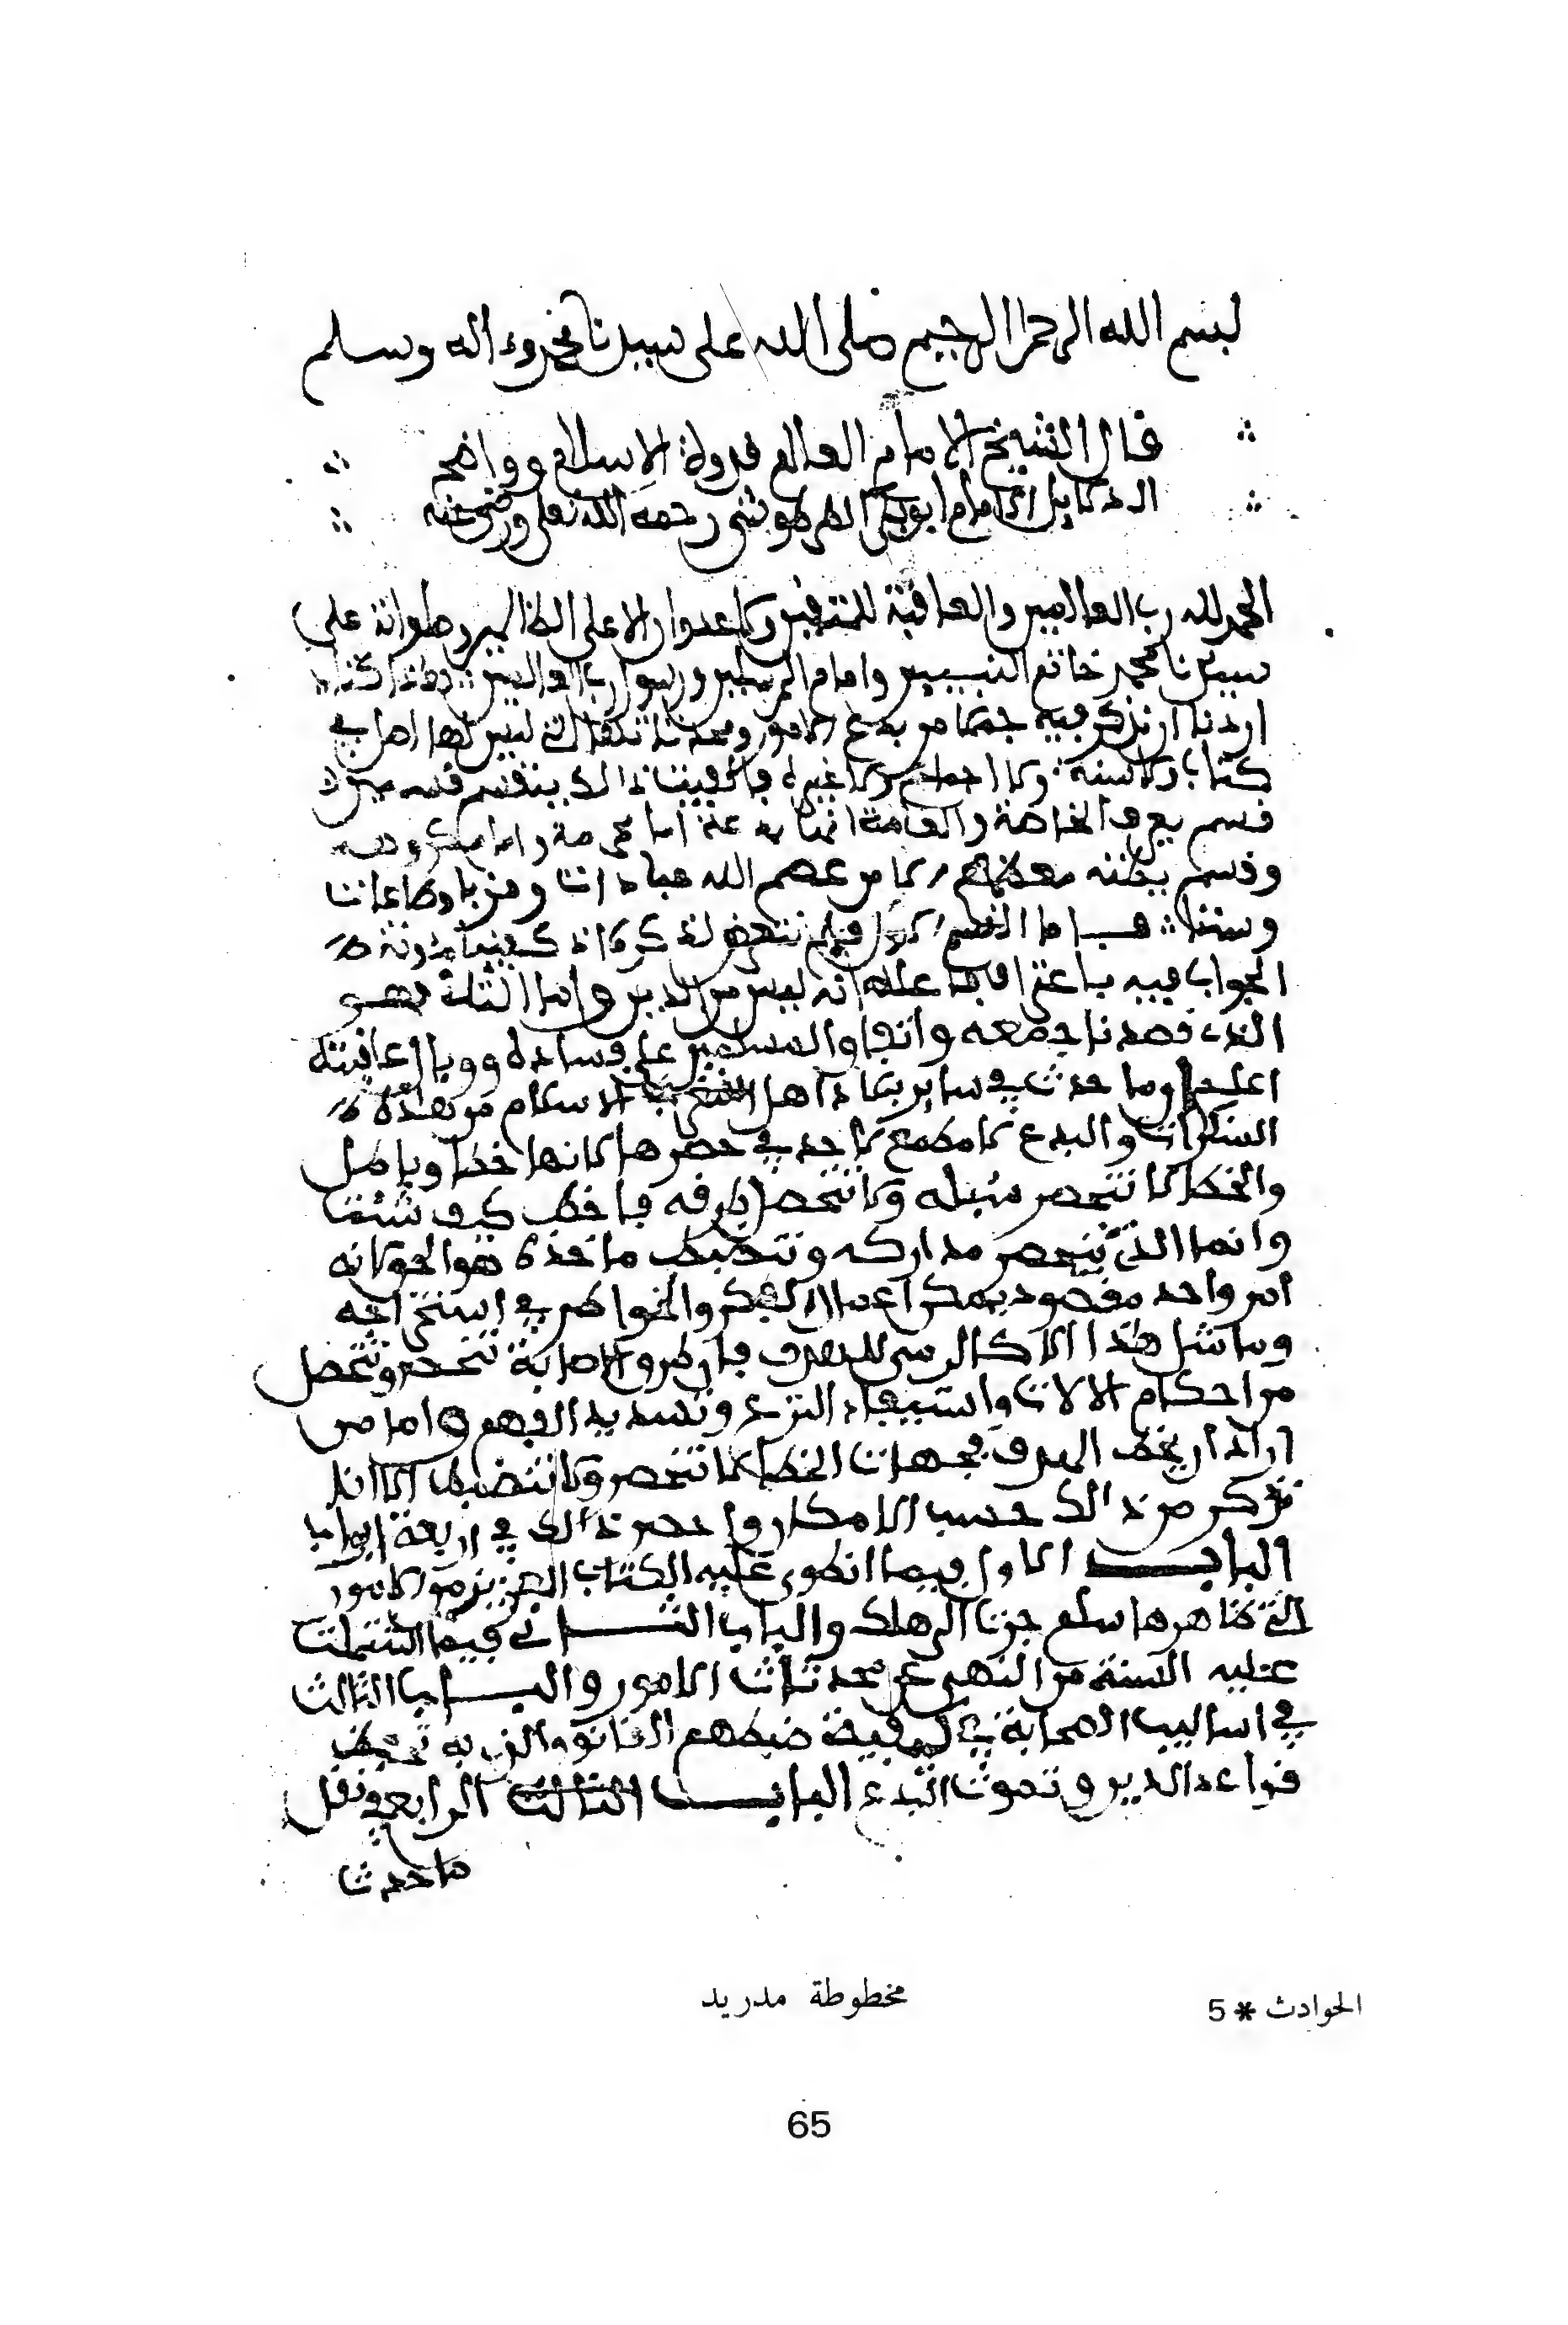 بسم الله الرحمن الرحيم صلى الله على سيدنا محمد وءاله وسلم
قال الشيخ الامام العالم قدوة الاسلام وواضح
الدلايل الامام ابو بكر الطرطوشي رحمه الله تعلى ورضي عنه
الحمد لله رب العالمين والعاقبة للمتقين ولا عدوان الا على الظالمين وصلواته على
سيدنا محمد خاتم النبيين وامام المرسلين ورسول رب العالمين هذا كتاب
اردنا ان نذكر فيه جملا من بدع الامور ومحدثاتها التي ليس لها اصل في
كتاب ولا سنة ولا اجماع ولا غيره فالفيت ذالك ينقسم قسمين
قسم يعرفه الخاصة والعامة انه بدعة اما محرمة واما مكروهة
وقسم يظنه معظمهم الا من عصم الله عبادات وقربا وطاعات
وسننا فاما القسم الاول فلم نتعرض لذكره اذ كفينا مؤنة
الجواب فيه باعتراف فاعله انه ليس من الدين واما الثاني فهو
الذي قصدنا جمعه وايقاف المسلمين على فساده ووبال عاقبته
اعلم وما حدث في ساير بلاد اهل الاسلام من هذه
المنكرات والبدع لا مطمع لاحد في حصرها لانها خطا وباطل
والخطا لا تنحصر سبله ولا تتحصل طرقه فاخط كيف شئت
وانما الذي تنحصر مداركه وتنضبط ماخذه هو الحق لانه
امر واحد مقصود يمكن اعمال الفكر والخواطر في استخراجه
وما مثل هذا الا كالرمي للهدف فان طرق الاصابة تنحصر وتتحصل
من احكام الالات واستيفاء النزع وتسديد السهم واما من
اراد ان يخطي الهدف فجهات الخطا لا تنحصر ولا تنضبط الا انا
نذكر من ذالك حسب الامكان وا حصر ذالك في اربعة ابواب
الباب الاول فيما انطوى عليه الكتاب العزيز من الامور
التي ظاهرها سلم جرت الى هلك والباب الثاني فيما اشتملت
عليه السنة من النهي عن محدثات الامور والباب الثالث
في اساليب الصحابة في كيفية ضبطهم القانون الذي به تحفظ
قواعد الدين وتموت البدع الباب الثالث الرابع في نقل
ما حدث
مخطوطة مدريد
الحوادث * 5
65